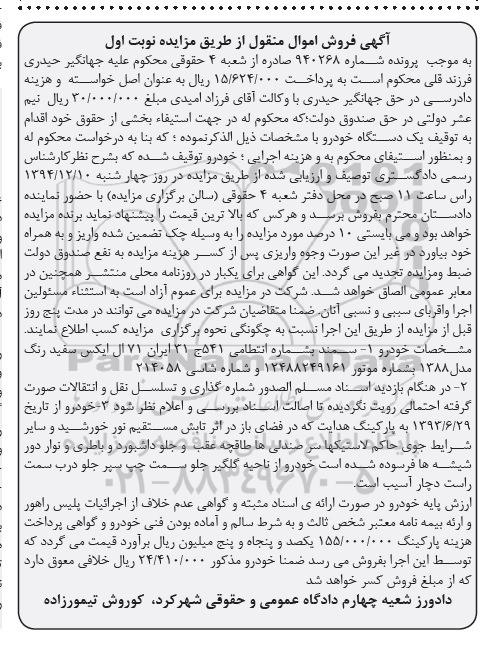 آگهی فروش اموال منقول از طریق مزایده نوبت اول
به موجب پرونده شماره ۹۴۰۲۶۸ صادره از شعبه ۴ حقوقی محکوم علیه جهانگیر حیدری
فرزند قلی محکوم است به پرداخت ۱۵/۶۲۴/۰۰۰ ریال به عنوان اصل خواسته و هزینه
دادرسی در حق جهانگیر حیدری با وکالت آقای فرزاد امیدی مبلغ ۳۰/۰۰۰/۰۰۰ ریال نیم
عشر دولتی در حق صندوق دولت؛که محکوم له در جهت استیفاء بخشی از حقوق خود اقدام
به توقیف یک دستگاه خودرو با مشخصات ذیل الذکرنموده ؛ که بنا به درخواست محکوم له
و بمنظور استیفای محکوم به و هزینه اجرایی ؛ خودرو توقیف شده که بشرح نظرکارشناس
رسمی دادگستری توصیف و ارزیابی شده از طریق مزایده در روز چهار شنبه ۱۳۹۴/۱۲/۱۰
راس ساعت ۱۱ صبح در محل دفتر شعبه ۴ حقوقی (سالن برگزاری مزایده) با حضور نماینده
دادستان محترم بفروش برسد و هرکس که بالا ترین قیمت را پیشنهاد نماید برنده مزایده
خواهد بود و می بایستی ۱۰ درصد مورد مزایده را به وسیله چک تضمین شده واریز و به همراه
خود بیاورد در غیر این صورت وجوه واریزی پس از کسر هزینه مزایده به نفع صندوق دولت
ضبط ومزایده تجدید می گردد. این گواهی برای یکبار در روزنامه محلی منتشر همچنین در
معابر عمومی الصاق خواهد شد. شرکت در مزایده برای عموم آزاد است به استثناء مسئولین
اجرا واقربای سببی و نسبی آنان. ضمنا متقاضیان شرکت در مزایده می توانند در مدت پنج روز
قبل از مزایده از طریق این اجرا نسبت به چگونگی نحوه برگزاری مزایده کسب اطلاع نمایند.
مشخصات خودرو ۱- سمند بشماره انتظامی ۵۴۱ج۳۱ ایران ۷۱ ال ایکس سفید رنگ
مدل۱۳۸۸ بشماره موتور ۱۲۴۸۸۲۴۹۱۶۱ و شماره شاسی ۲۱۴۰۵۸
۲- در هنگام بازدید اسناد مسلم الصدور شماره گذاری و تسلسل نقل و انتقالات صورت
گرفته احتمالی رویت نگردیده تا اصالت اسناد بررسی و اعلام نظر شود ۳-خودرو از تاریخ
۱۳۹۳/۶/۲۹ به پارکینگ هدایت که در فضای باز در اثر تابش مستقیم نور خورشید و سایر
شرایط جوی حاکم لاستیکها سر صندلی ها طاقچه عقب و جلو داشبورد و باطری و نوار دور
شیشه ها فرسوده شده است خودرو از ناحیه گلگیر جلو سمت چپ سپر جلو درب سمت
راست دچار آسیب است.
ارزش پایه خودرو در صورت ارائه ی اسناد مثبته و گواهی عدم خلاف از اجرائیات پلیس راهور
و ارئه بیمه نامه معتبر شخص ثالث و به شرط سالم و آماده بودن فنی خودرو و گواهی پرداخت
هزینه پارکینگ ۱۵۵/۰۰۰/۰۰۰ یکصد و پنجاه و پنج میلیون ریال برآورد قیمت می گردد که
توسط این اجرا بفروش می رسد ضمنا خودرو مذکور ۲۴/۴۱۰/۰۰۰ ریال خلافی معوق دارد
که از مبلغ فروش کسر خواهد شد
دادورز شعیه چهارم دادگاه عمومی و حقوقی شهرکرد، کوروش تیمورزاده
۰۲۱-۸۸۳۴۹۶۷۰-۵